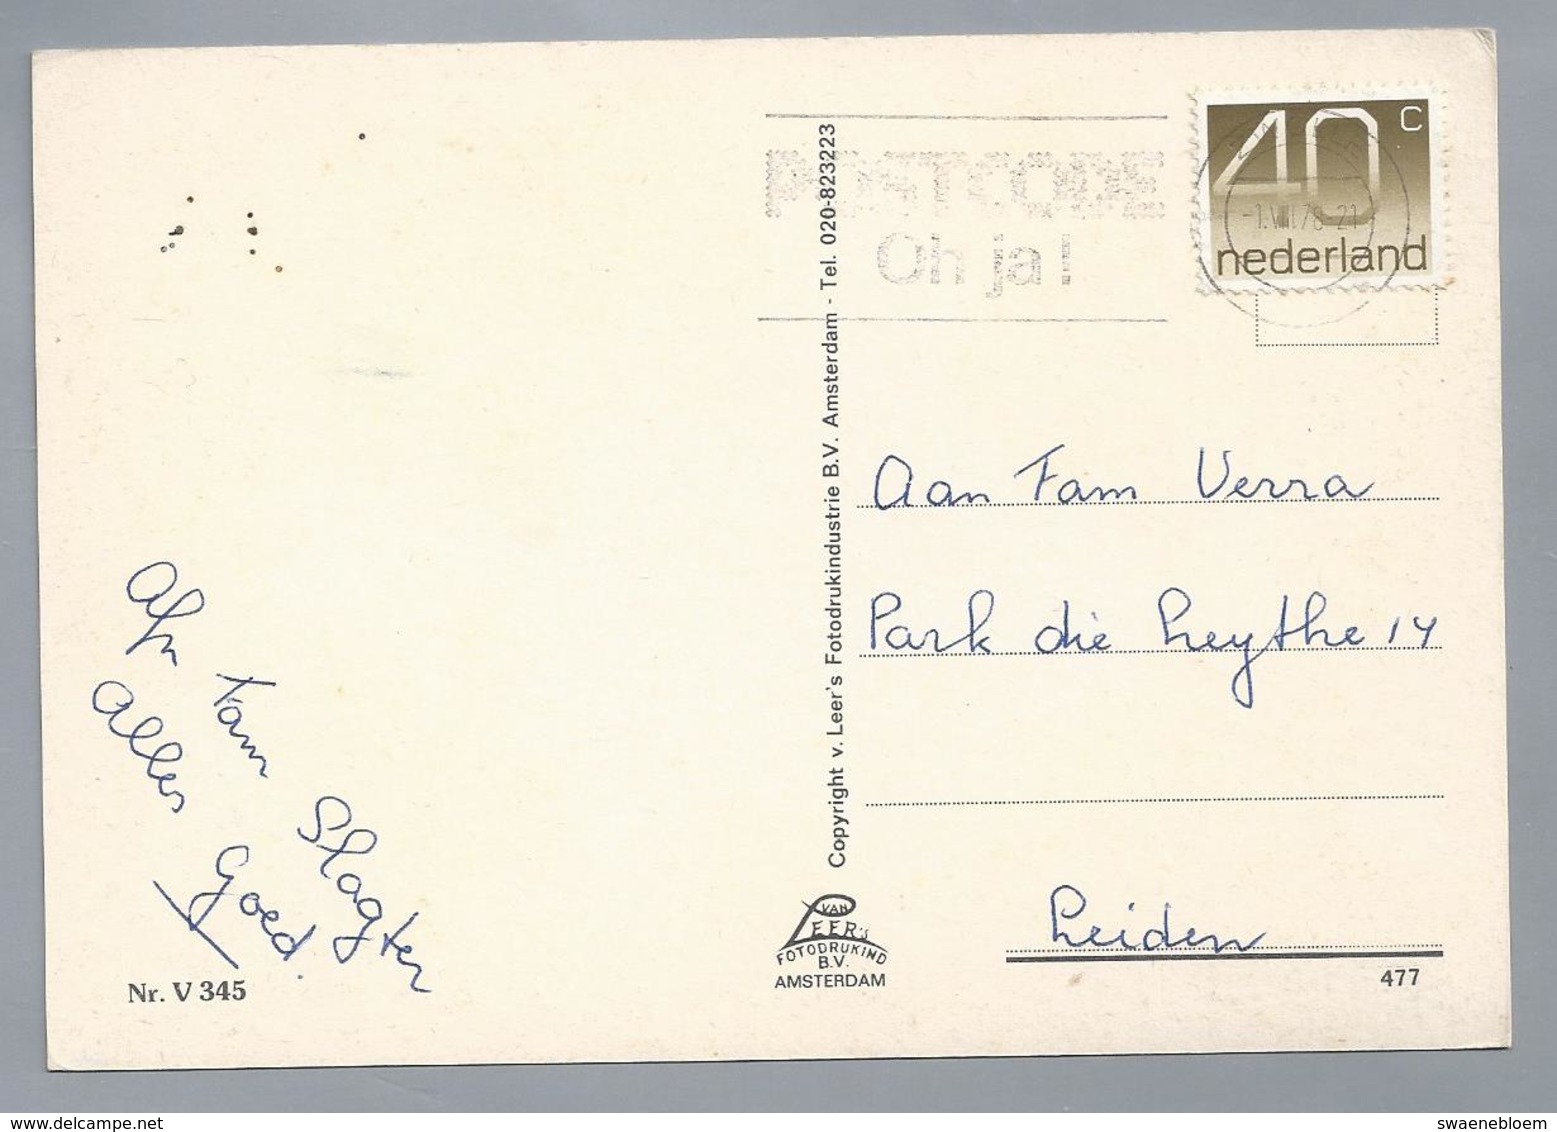 40 c
nederland
-1.VIII.78-21
POSTCODE
Oh ja!
Copyright v. Leer's Fotodrukindustrie B.V. Amsterdam - Tel. 020-823223
Aan Fam Verra
Park die Leythe 14
Leiden
477
Afz Fam Slagter
Alles Goed.
Nr. V 345
VAN
LEER'S
FOTODRUKIND
B.V.
AMSTERDAM
delcampe.net
swaenebloem